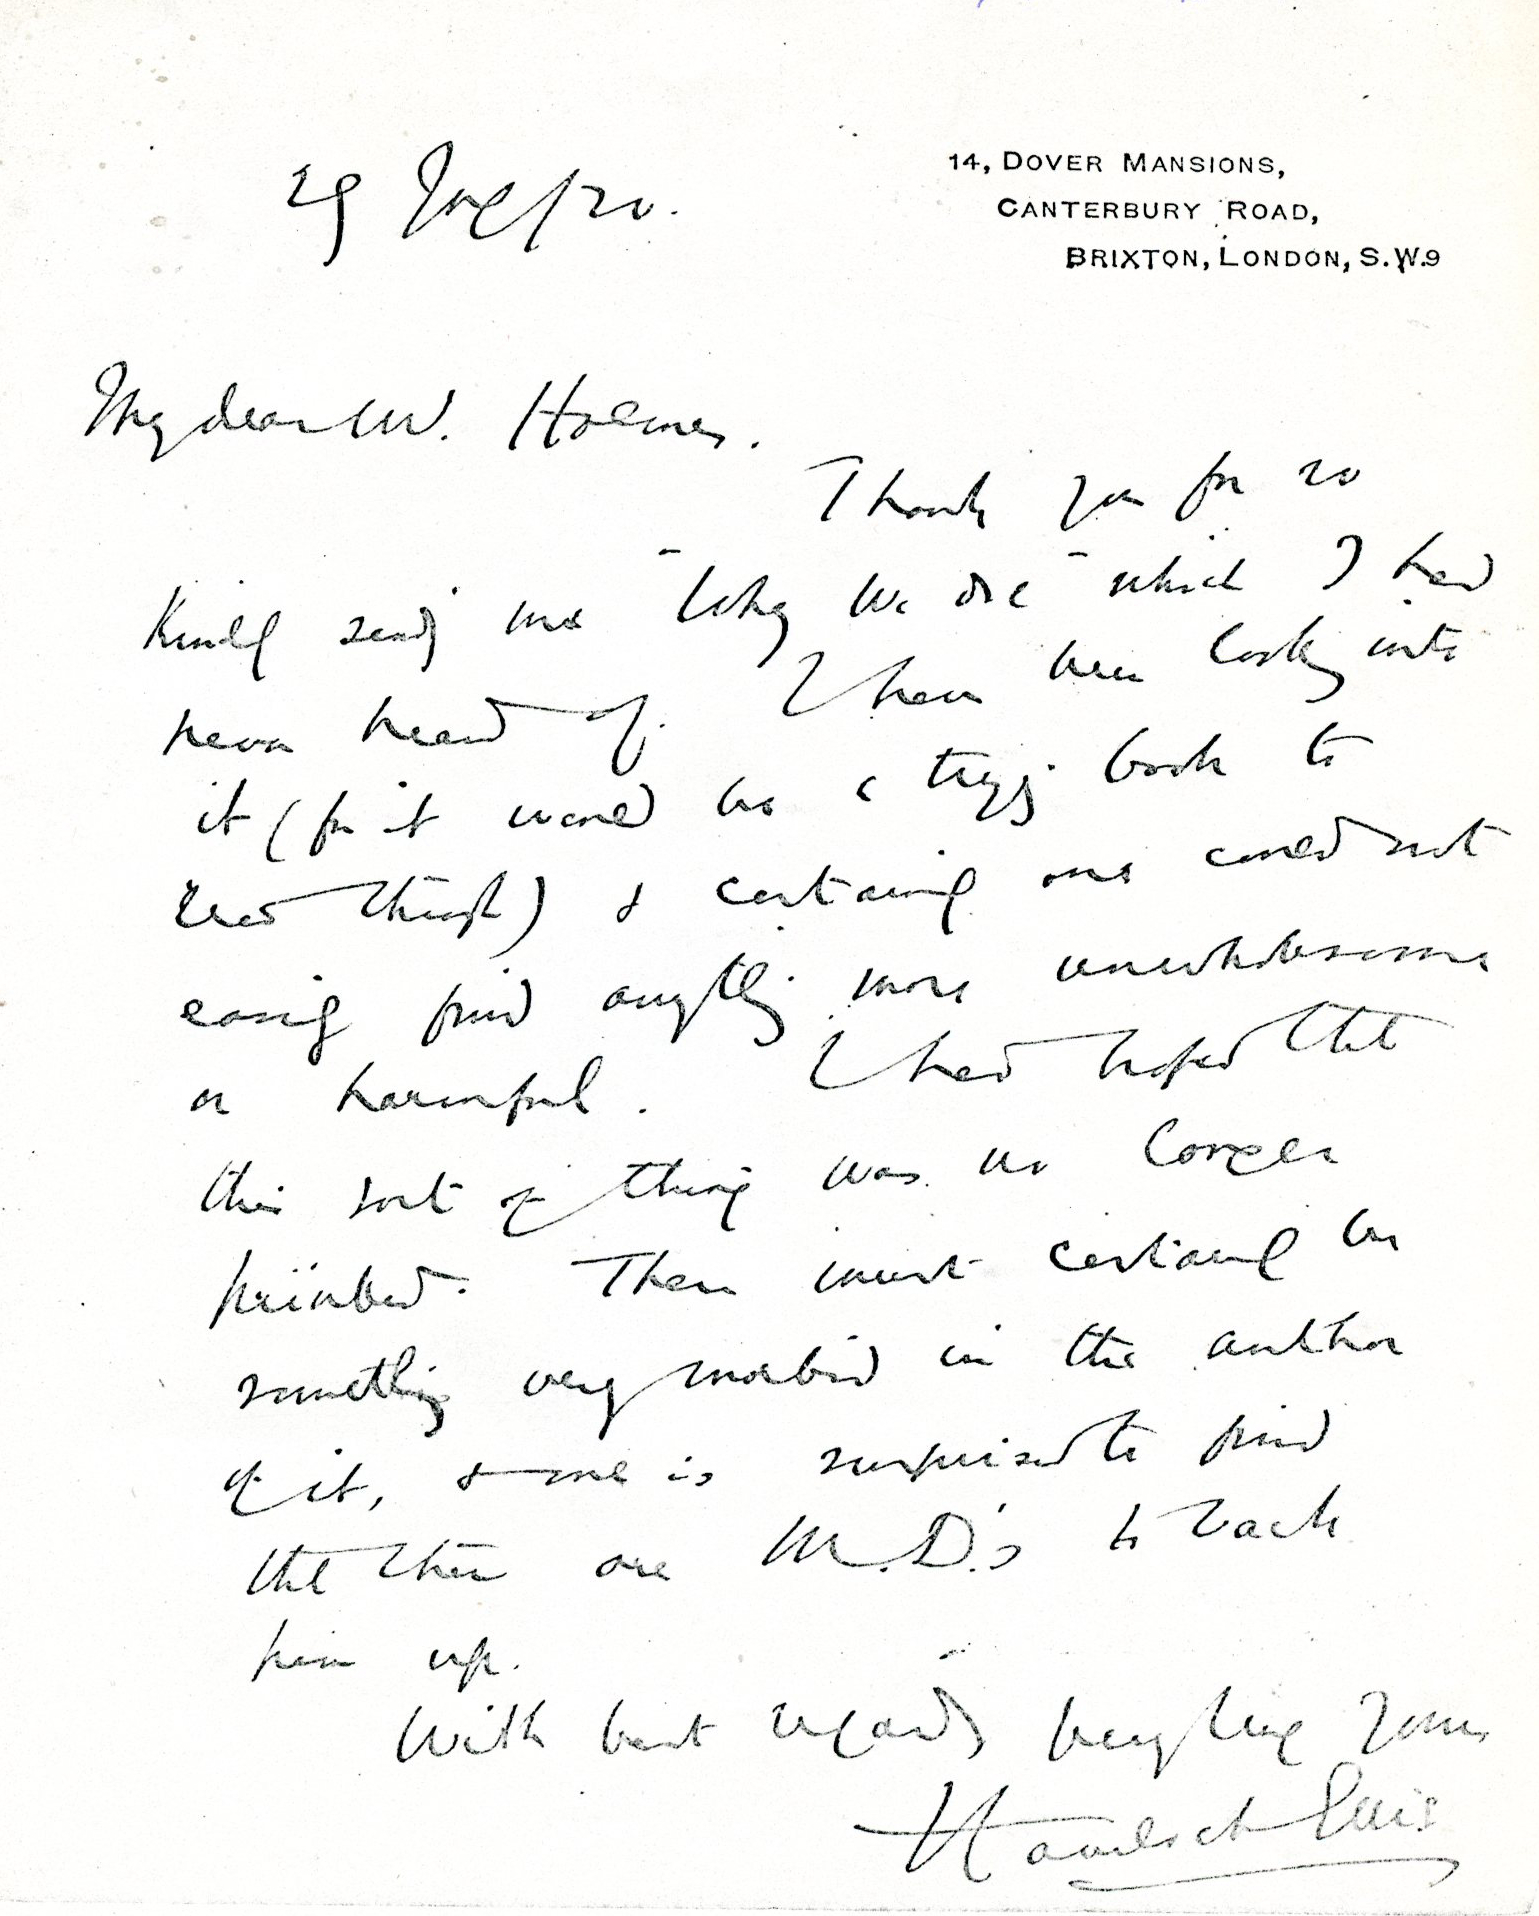 14, DOVER MANSIONS,
CANTERBURY ROAD,
BRIXTON, LONDON, S.W.9
29 /20.
My dear Mr. Holmes.
Thank you for so
kindly sendg me "Why We die" which I had
never heard of. I have been looking into
it (for it would be a tryg book to
read through) & certainly one could not
easily find anything more unwholesome
or harmful. I had hoped that
this sort of thing was no longer
printed. There must certainly be
something very morbid in the author
of it, & one is surprised to find
that there are M.D.'s to back
him up.
With best regards very truly yours
Havelock Ellis